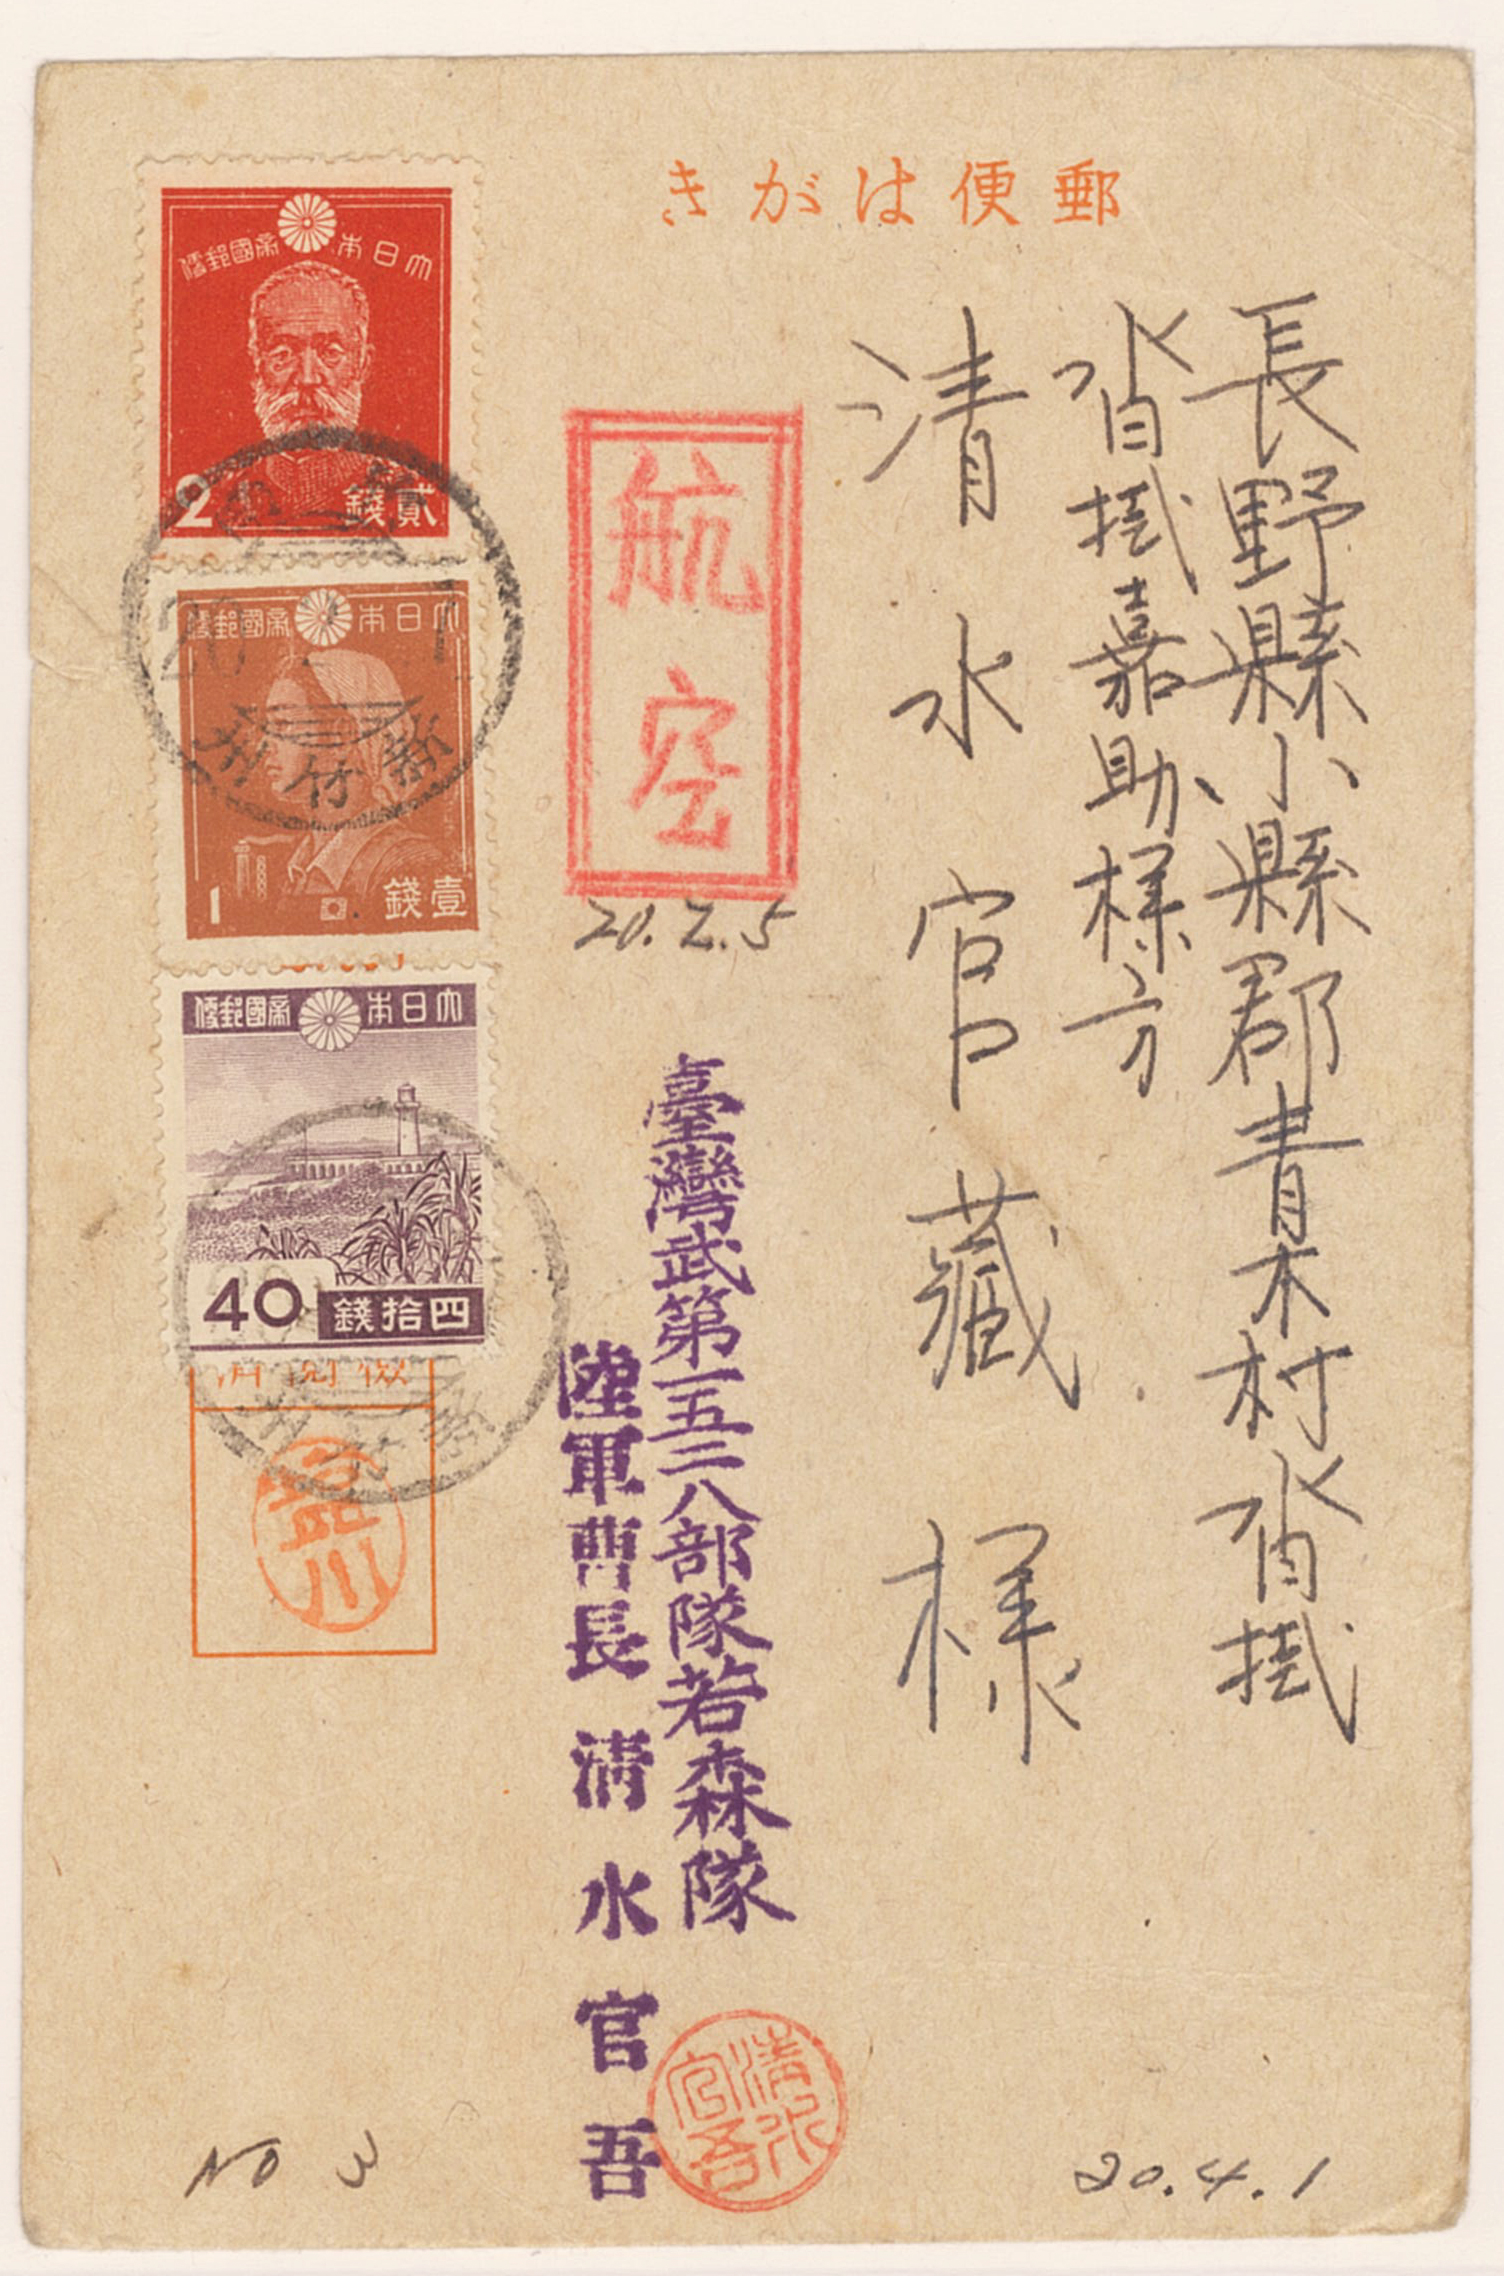 郵便はがき
長野縣小縣郡青木村沓掛
沓掛嘉助様方
清水官藏様
航空
20.2.5
臺灣武第一五二八部隊若森隊
陸軍曹長清水官吾
清水官吾
大日本帝國郵便
2 貳錢
大日本帝國郵便
1 壹錢
大日本帝國郵便
40 四拾錢
新竹
20
20.4.1
NO 3